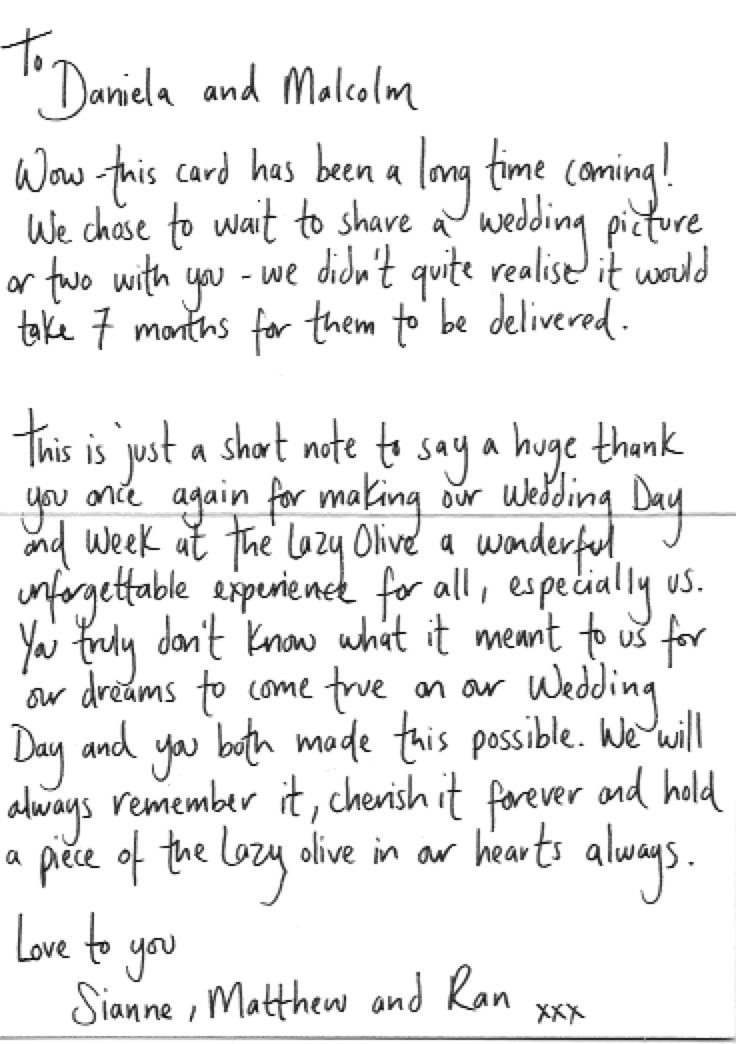 To
Daniela and Malcolm
Wow - this card has been a long time coming!
We chose to wait to share a wedding picture
or two with you - we didn't quite realise it would
take 7 months for them to be delivered.
This is just a short note to say a huge thank
you once again for making our Wedding Day
and Week at the Lazy Olive a wonderful
unforgettable experience for all, especially us.
You truly don't know what it meant to us for
our dreams to come true on our Wedding
Day and you both made this possible. We will
always remember it, cherish it forever and hold
a piece of the Lazy olive in our hearts always.
Love to you
Sianne, Matthew and Ran xxx